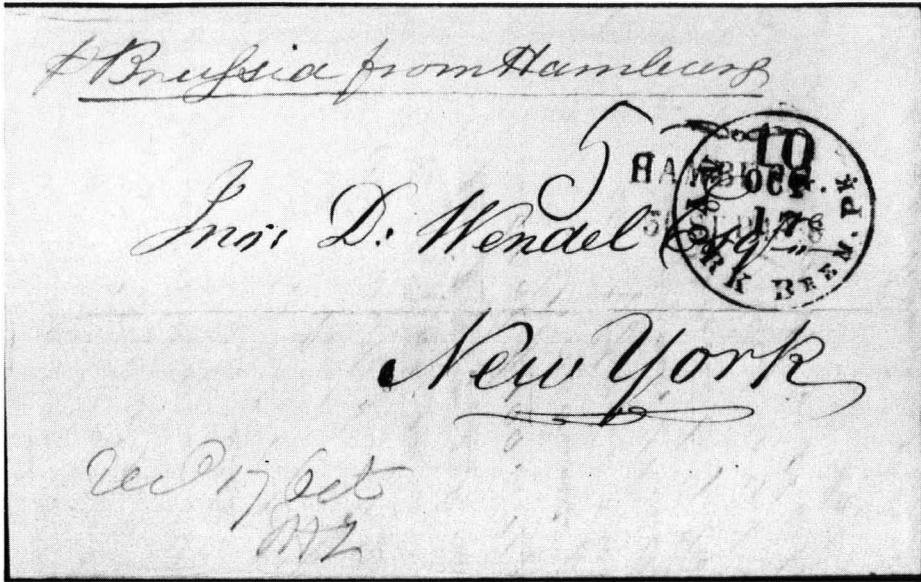 p Prussia from Hamburg
5
HAMBURG.
10
OCT
17
NEW YORK BREM. PK
Jno: D: Wendel Esqre
New York
Recd 17 Oct